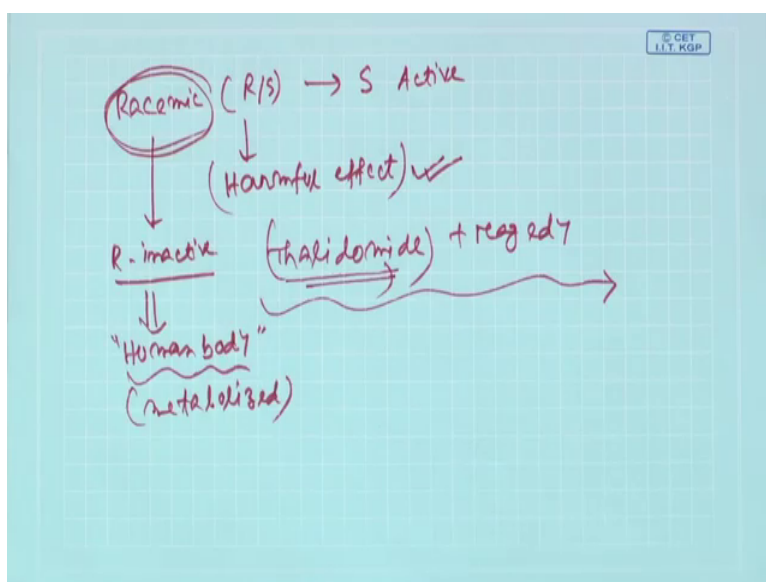 © CET
I.I.T. KGP
Racemic (R/S) → S Active
(Harmful effect)
R-inactive (Thalidomide) tragedy
"Human body"
(metabolized)